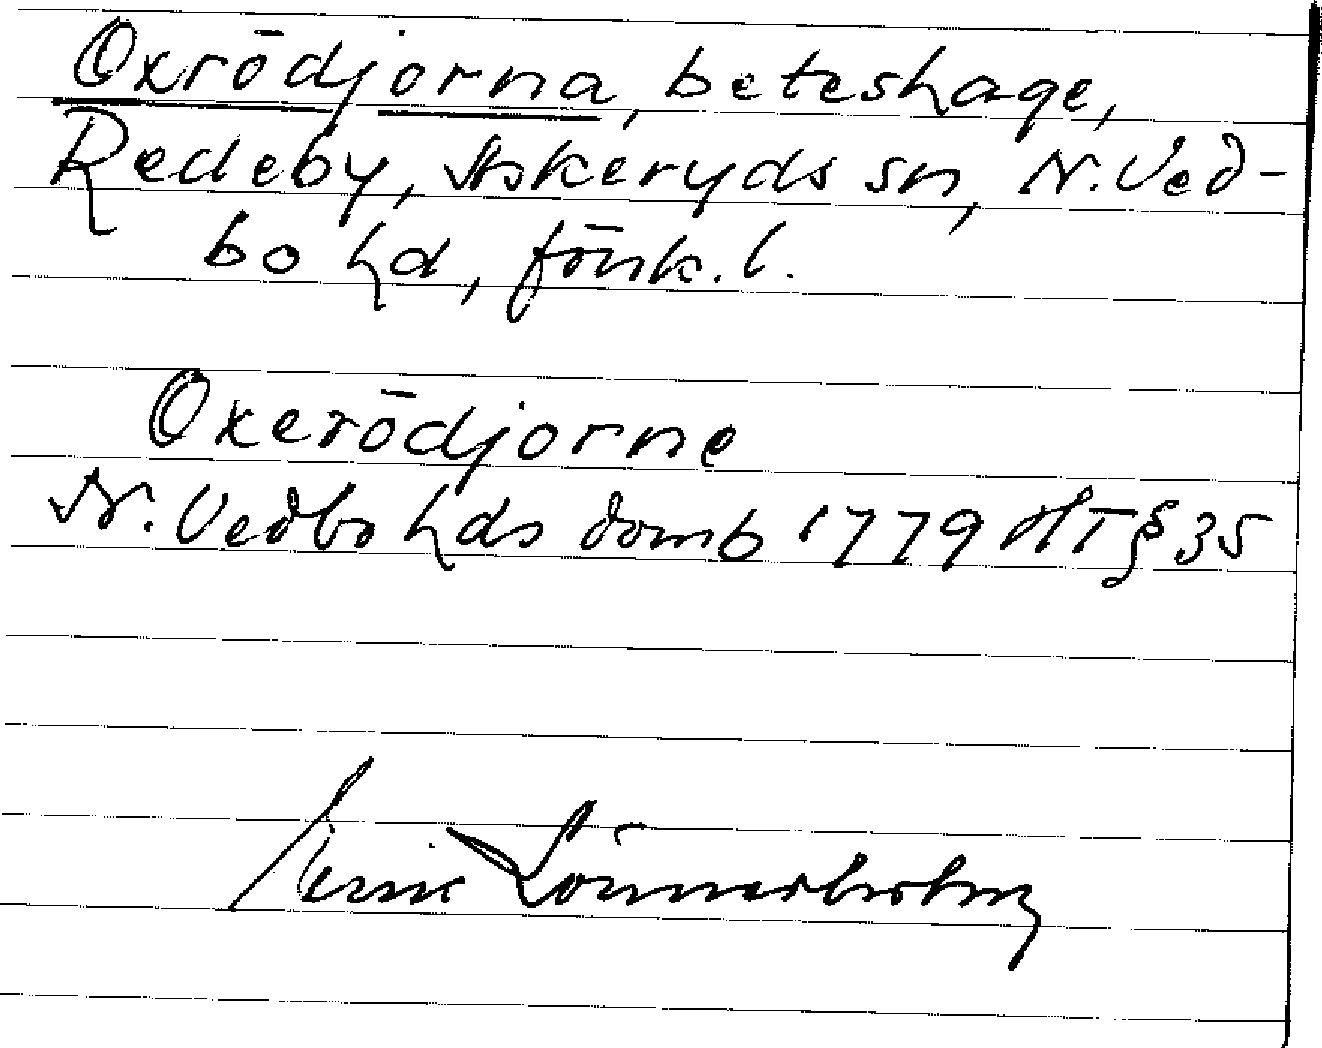 Oxrödjorna, beteshage,
Redeby, Askeryds sn, N. Ved-
bo hd, Jönk. l.
Oxerödjorne
N. Vedbo hds domb 1779 HT § 35
Lönnerholm